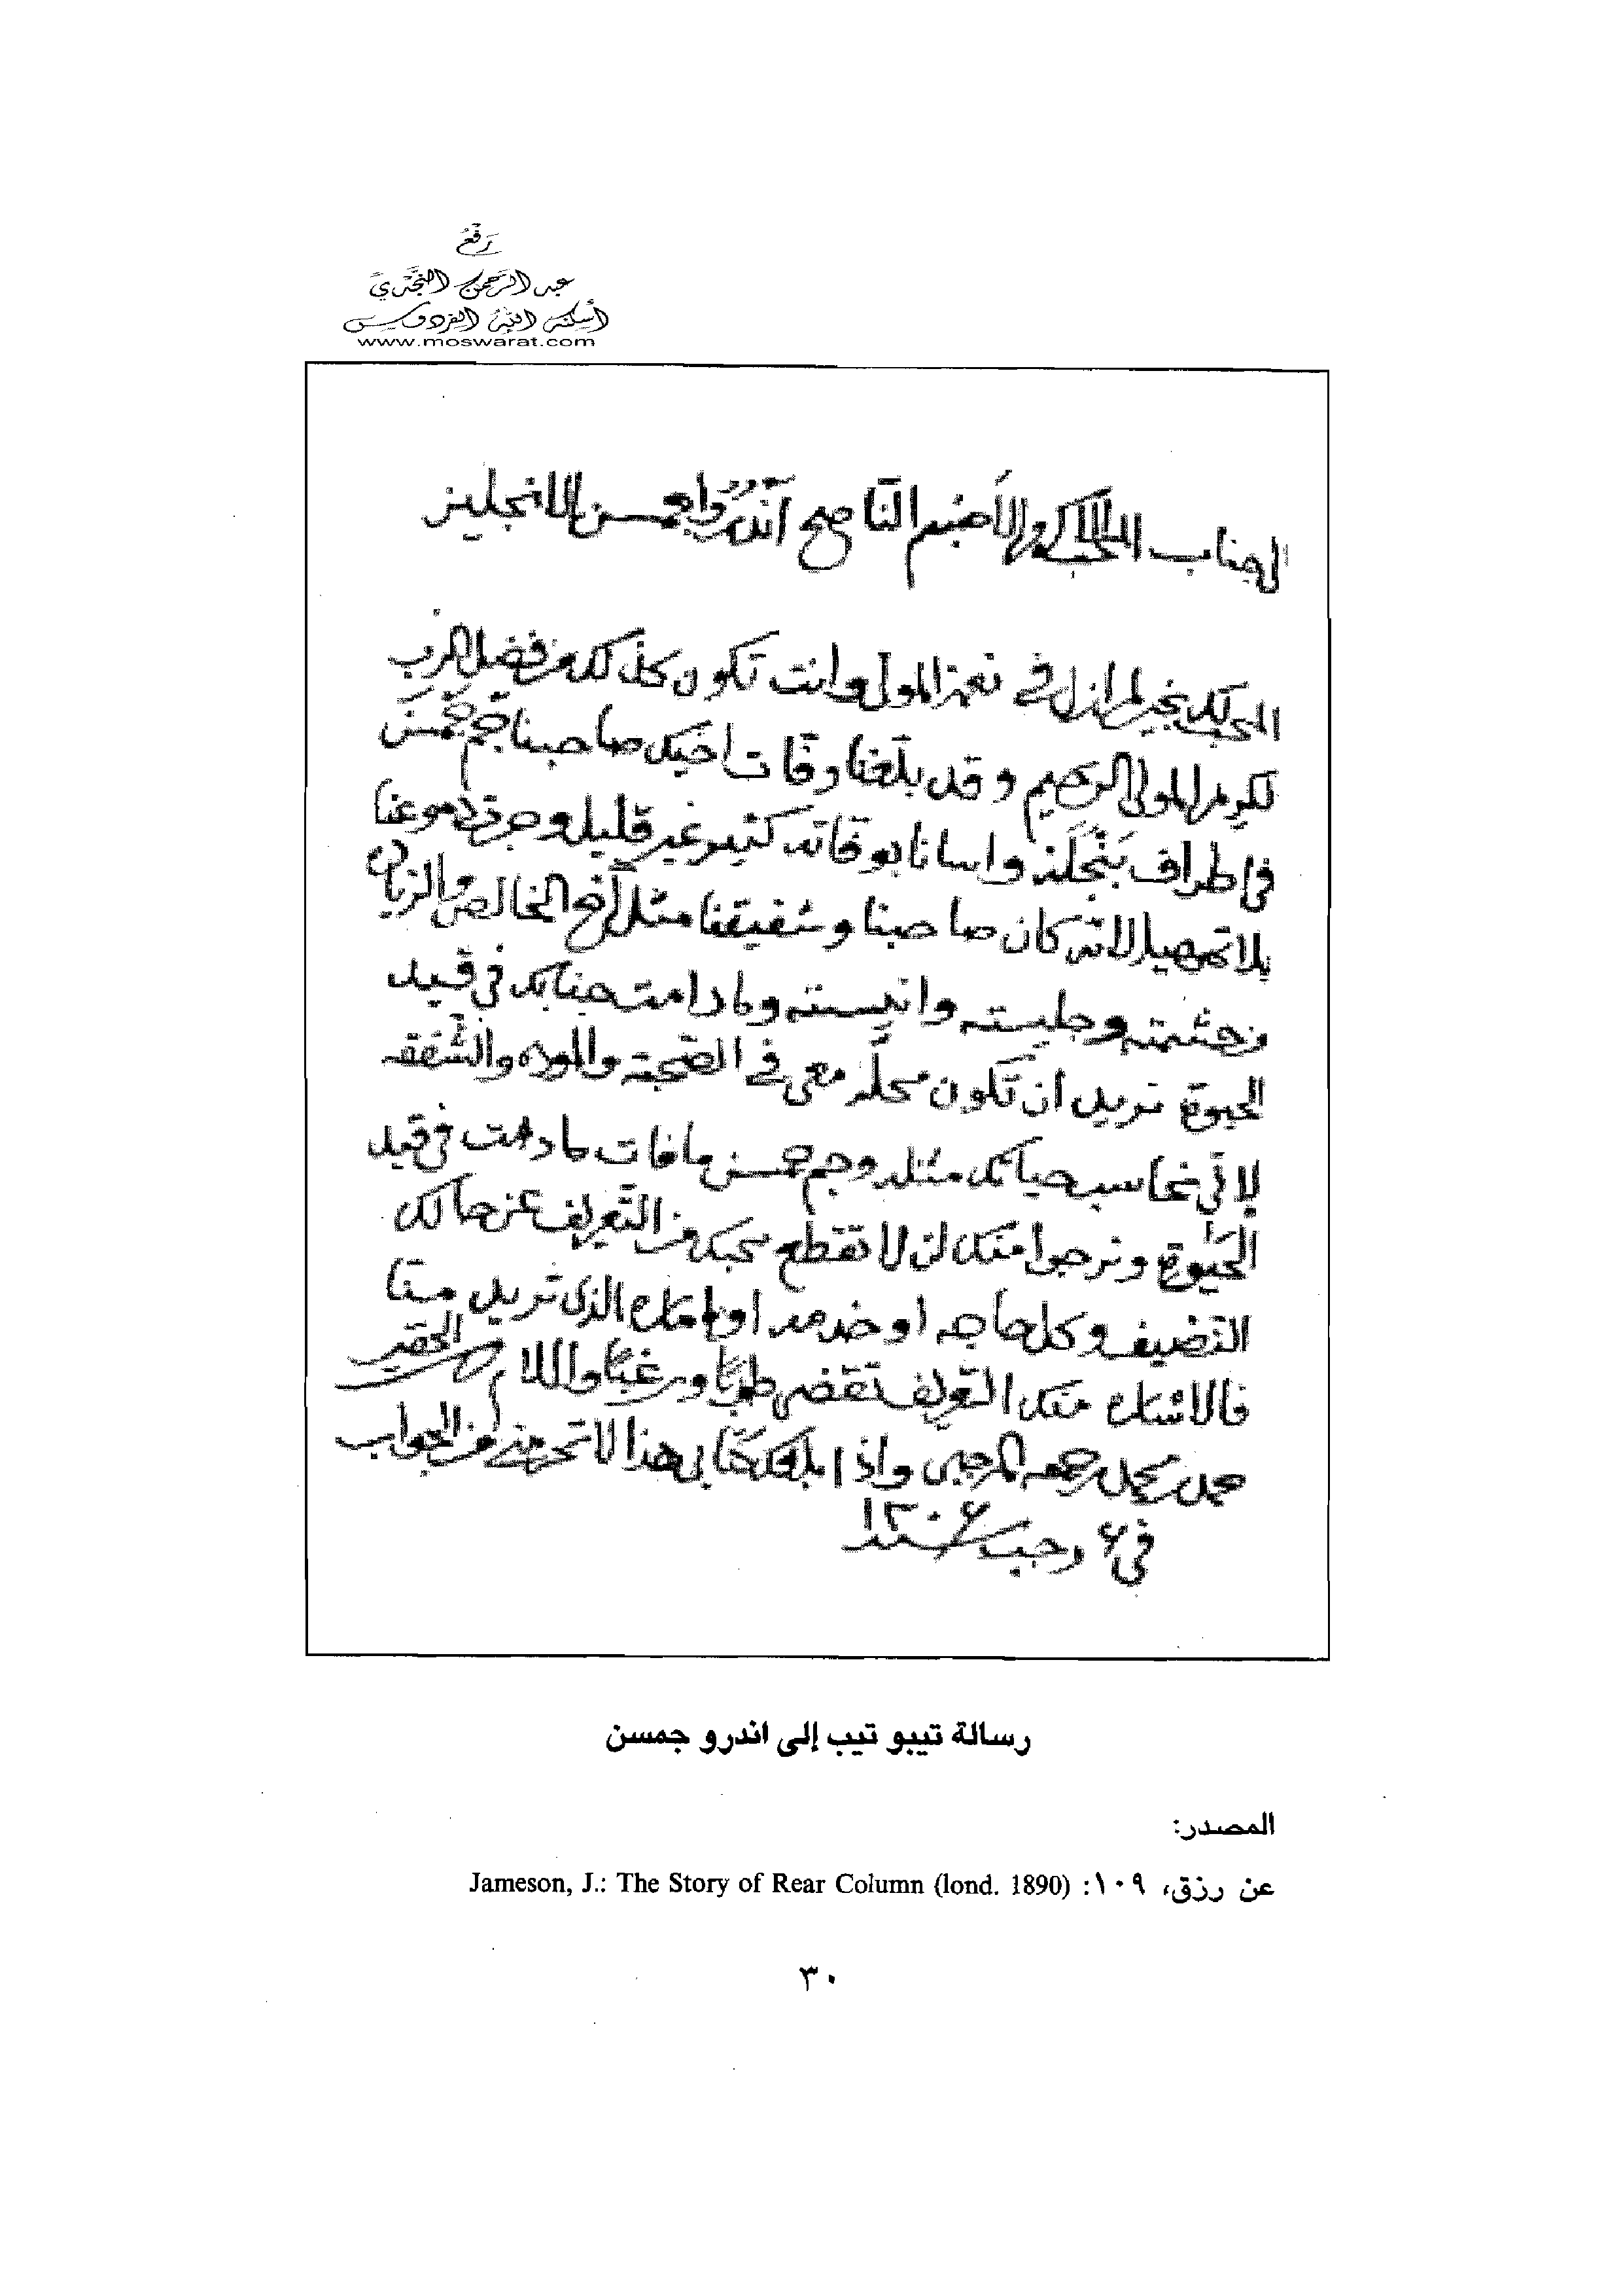 رفع
عبد الرحمن النجدي
أسكنه الله الفردوس
www.moswarat.com
الى جناب الناصح اندرو جمسن الانجليز
المحب لك بخير لم ازل في نعمة المولى وانت تكون كذلك من فضل الرب
الكريم المولى الرحيم وقد بلغنا وفات اخيك صاحبنا جم جمسن
في اطراف بنجلة واسانا بوفاته كثير غير قليل وجرة دموعنا
بلا تمهيل لانه كان صاحبنا وشفيقنا مثل أخ الخالص
من حشمته وجليسته وانيسته ومادامت جنابك في قيد
الحيوة نريد ان تكون محله معي في الصحبة والموده والشفقه
لاني نحاسب حياتك مثله وجم جمسن مافات مادمت في قيد
الحيوة ونرجوا منك ان لا تقطع محبك من التعريف عن حالك
النضيف وكل حاجه او خدمه او اماره الذي تريد منا
فالاشاره منك التعريف تقضى طربًا ورغبًا والسلام من الحقير
حمد بن محمد بن جمعه المرجبى واذا بلغك كتابي هذا لا تحرمني من الجواب
في ۶ رجب سنه ١٣٠۶
رسالة تيبو تيب إلى اندرو جمسن
المصدر:
عن رزق، ١٠٩: Jameson, J.: The Story of Rear Column (lond. 1890)
٣٠